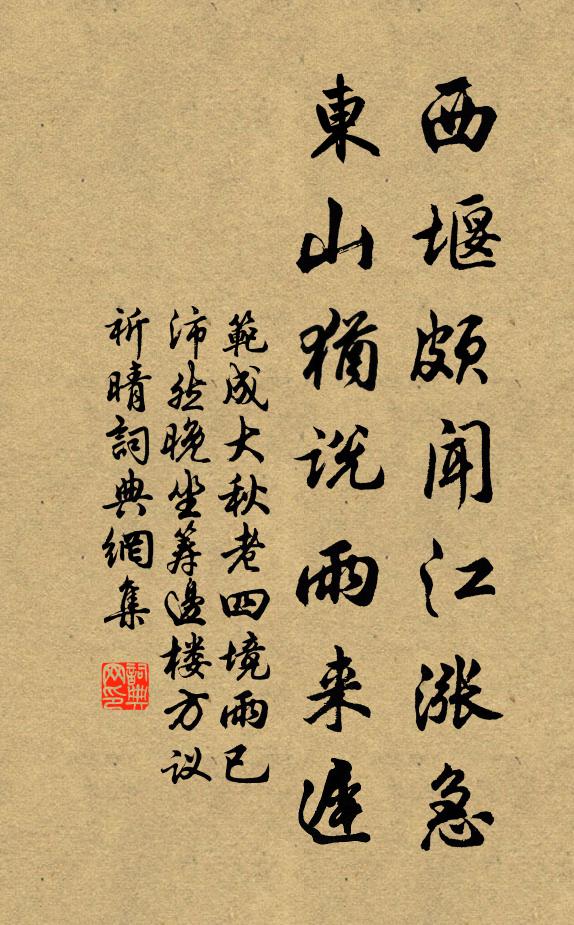 西堰頗聞江漲急
東山猶説雨来遲
範成大秋老四境雨已
沛然晚坐筹邊楼方议
祈晴詞典網集
詞典
网印